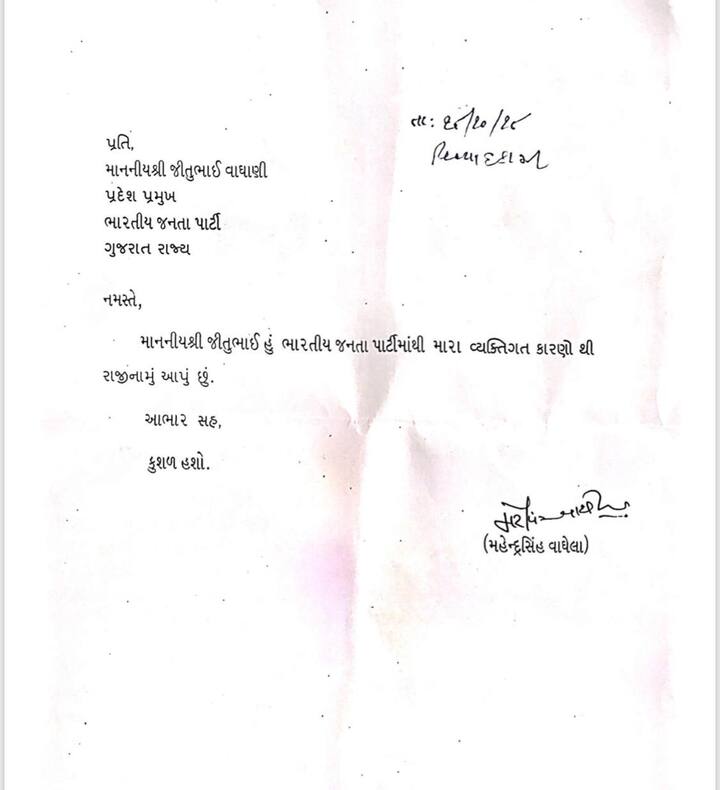 તા: ૧૮/૧૦/૧૮
પ્રતિ,
માનનીયશ્રી જીતુભાઈ વાઘાણી
પ્રદેશ પ્રમુખ
ભારતીય જનતા પાર્ટી
ગુજરાત રાજ્ય
નમસ્તે,
માનનીયશ્રી જીતુભાઈ હું ભારતીય જનતા પાર્ટીમાંથી મારા વ્યક્તિગત કારણો થી
રાજીનામું આપું છું.
આભાર સહ,
કુશળ હશો.
(મહેન્દ્રસિંહ વાઘેલા)